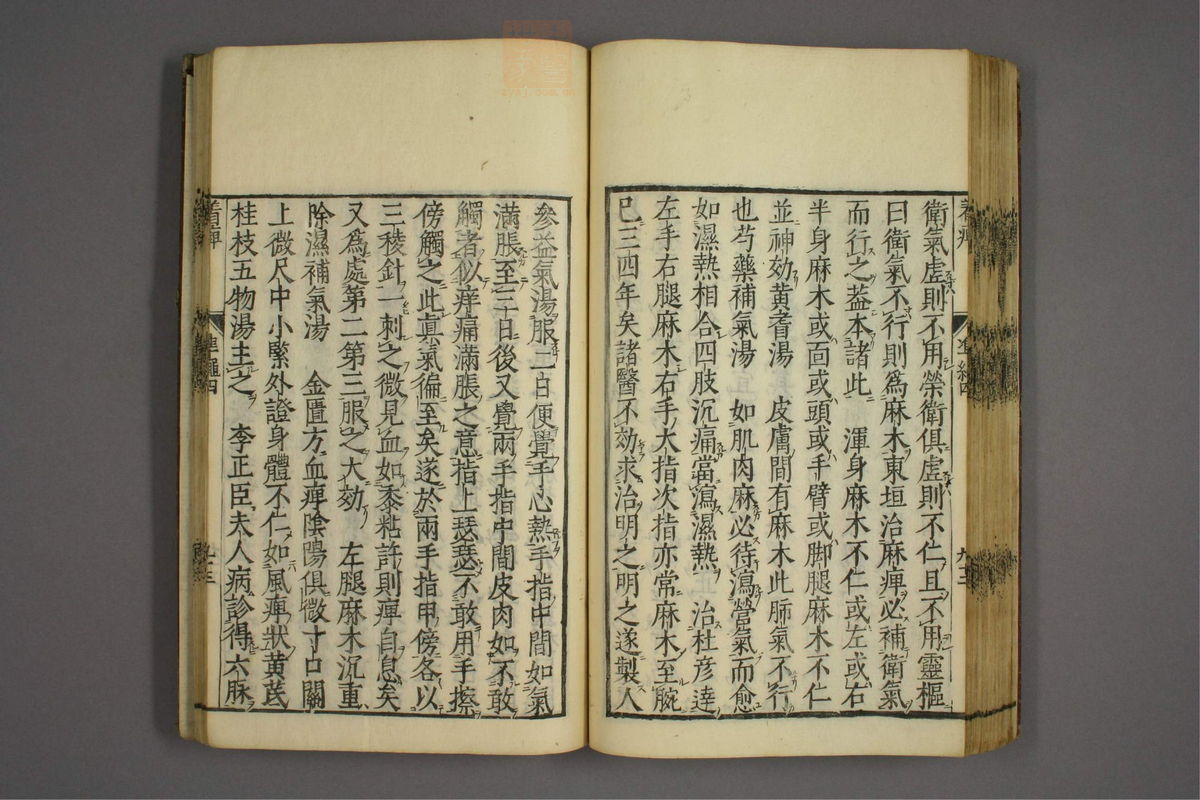 衛氣虛則不用榮衛俱虛則不仁且不用靈樞
曰衛氣不行則爲麻木東垣治麻痺必補衛氣
而行之葢本諸此　渾身麻木不仁或左或右
半身麻木或面或頭或手臂或脚腿麻木不仁
並神効黃耆湯　皮膚間有麻木此肺氣不行
也芍藥補氣湯　如肌肉麻必待瀉營氣而愈
如濕熱相合四肢沉痛當瀉濕熱　治杜彥逹
左手右腿麻木右手大指次指亦常麻木至腕
已三四年矣諸醫不効求治明之明之遂製人
參益氣湯服二日便覺手心熱手指中間如氣
滿脹至三日後又覺兩手指中間皮肉如不敢
觸者似痒痛滿脹之意指上瑟瑟不敢用手擦
傍觸之此眞氣徧至矣遂於兩手指甲傍各以
三稜針一刺之微見血如黍粘許則痺自息矣
又爲處第二第三服之大効　左腿麻木沉重
除濕補氣湯　金匱方血痺陰陽俱微寸口關
上微尺中小緊外證身體不仁如風痺狀黃芪
桂枝五物湯主之　李正臣夫人病診得六脉
着痺
準繩四
九十三